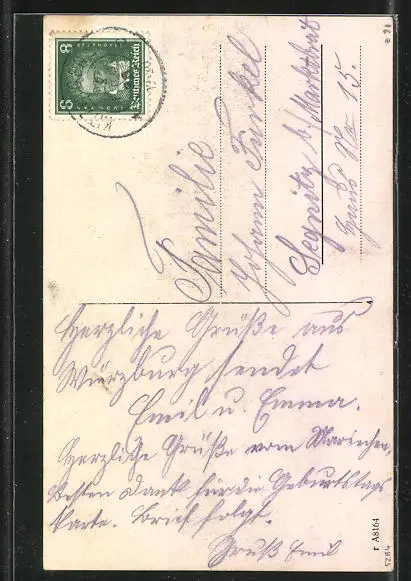 8 8
Deutsches Reich
Familie
Johann Funkel
Segnitz b/ Marktbreit
Haus No 15.
Herzliche Grüße aus
Würzburg sendet
Emil u. Emma.
Herzliche Grüße vom Mariechen,
besten Dank für die Geburtstags
karte. Brief folgt.
Gruß Emil
r A8164
5284